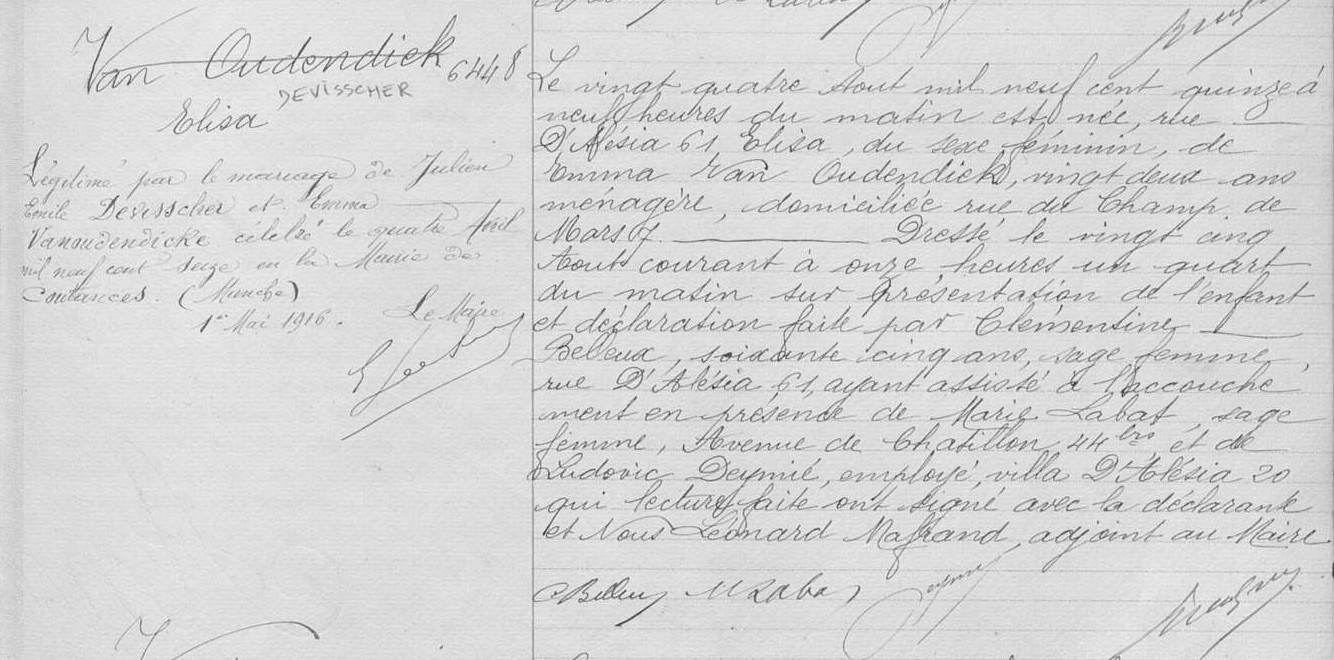 Van Oudendick 6448
DEVISSCHER
Elisa
Légitimé par le mariage de Julien
Emile Devisscher et Emma
Vanoudendicke célébré le quatre Avril
mil neuf cent seize en la Mairie de
Coutances. (Manche)
1er Mai 1916. Le Maire
Le vingt quatre Aout mil neuf cent quinze à
neuf heures du matin est née, rue
D'Alésia 61, Elisa, du sexe féminin, de
Emma Van Oudendick, vingt deux ans
ménagère, domiciliée rue du Champ de
Mars 7. Dressé le vingt cinq
Aout courant à onze heures un quart
du matin sur présentation de l'enfant
et déclaration faite par Clémentine
Belleux, soixante cinq ans, sage femme,
rue D'Alésia 61, ayant assisté à l'accouche
ment en présence de Marie Labat, sage
femme, Avenue de Chatillon 44 bis et de
Ludovic Deymié, employé, villa D'Alésia 20
qui lecture faite ont signé avec la déclarante
et Nous Léonard adjoint au Maire
CBelleux M Labat